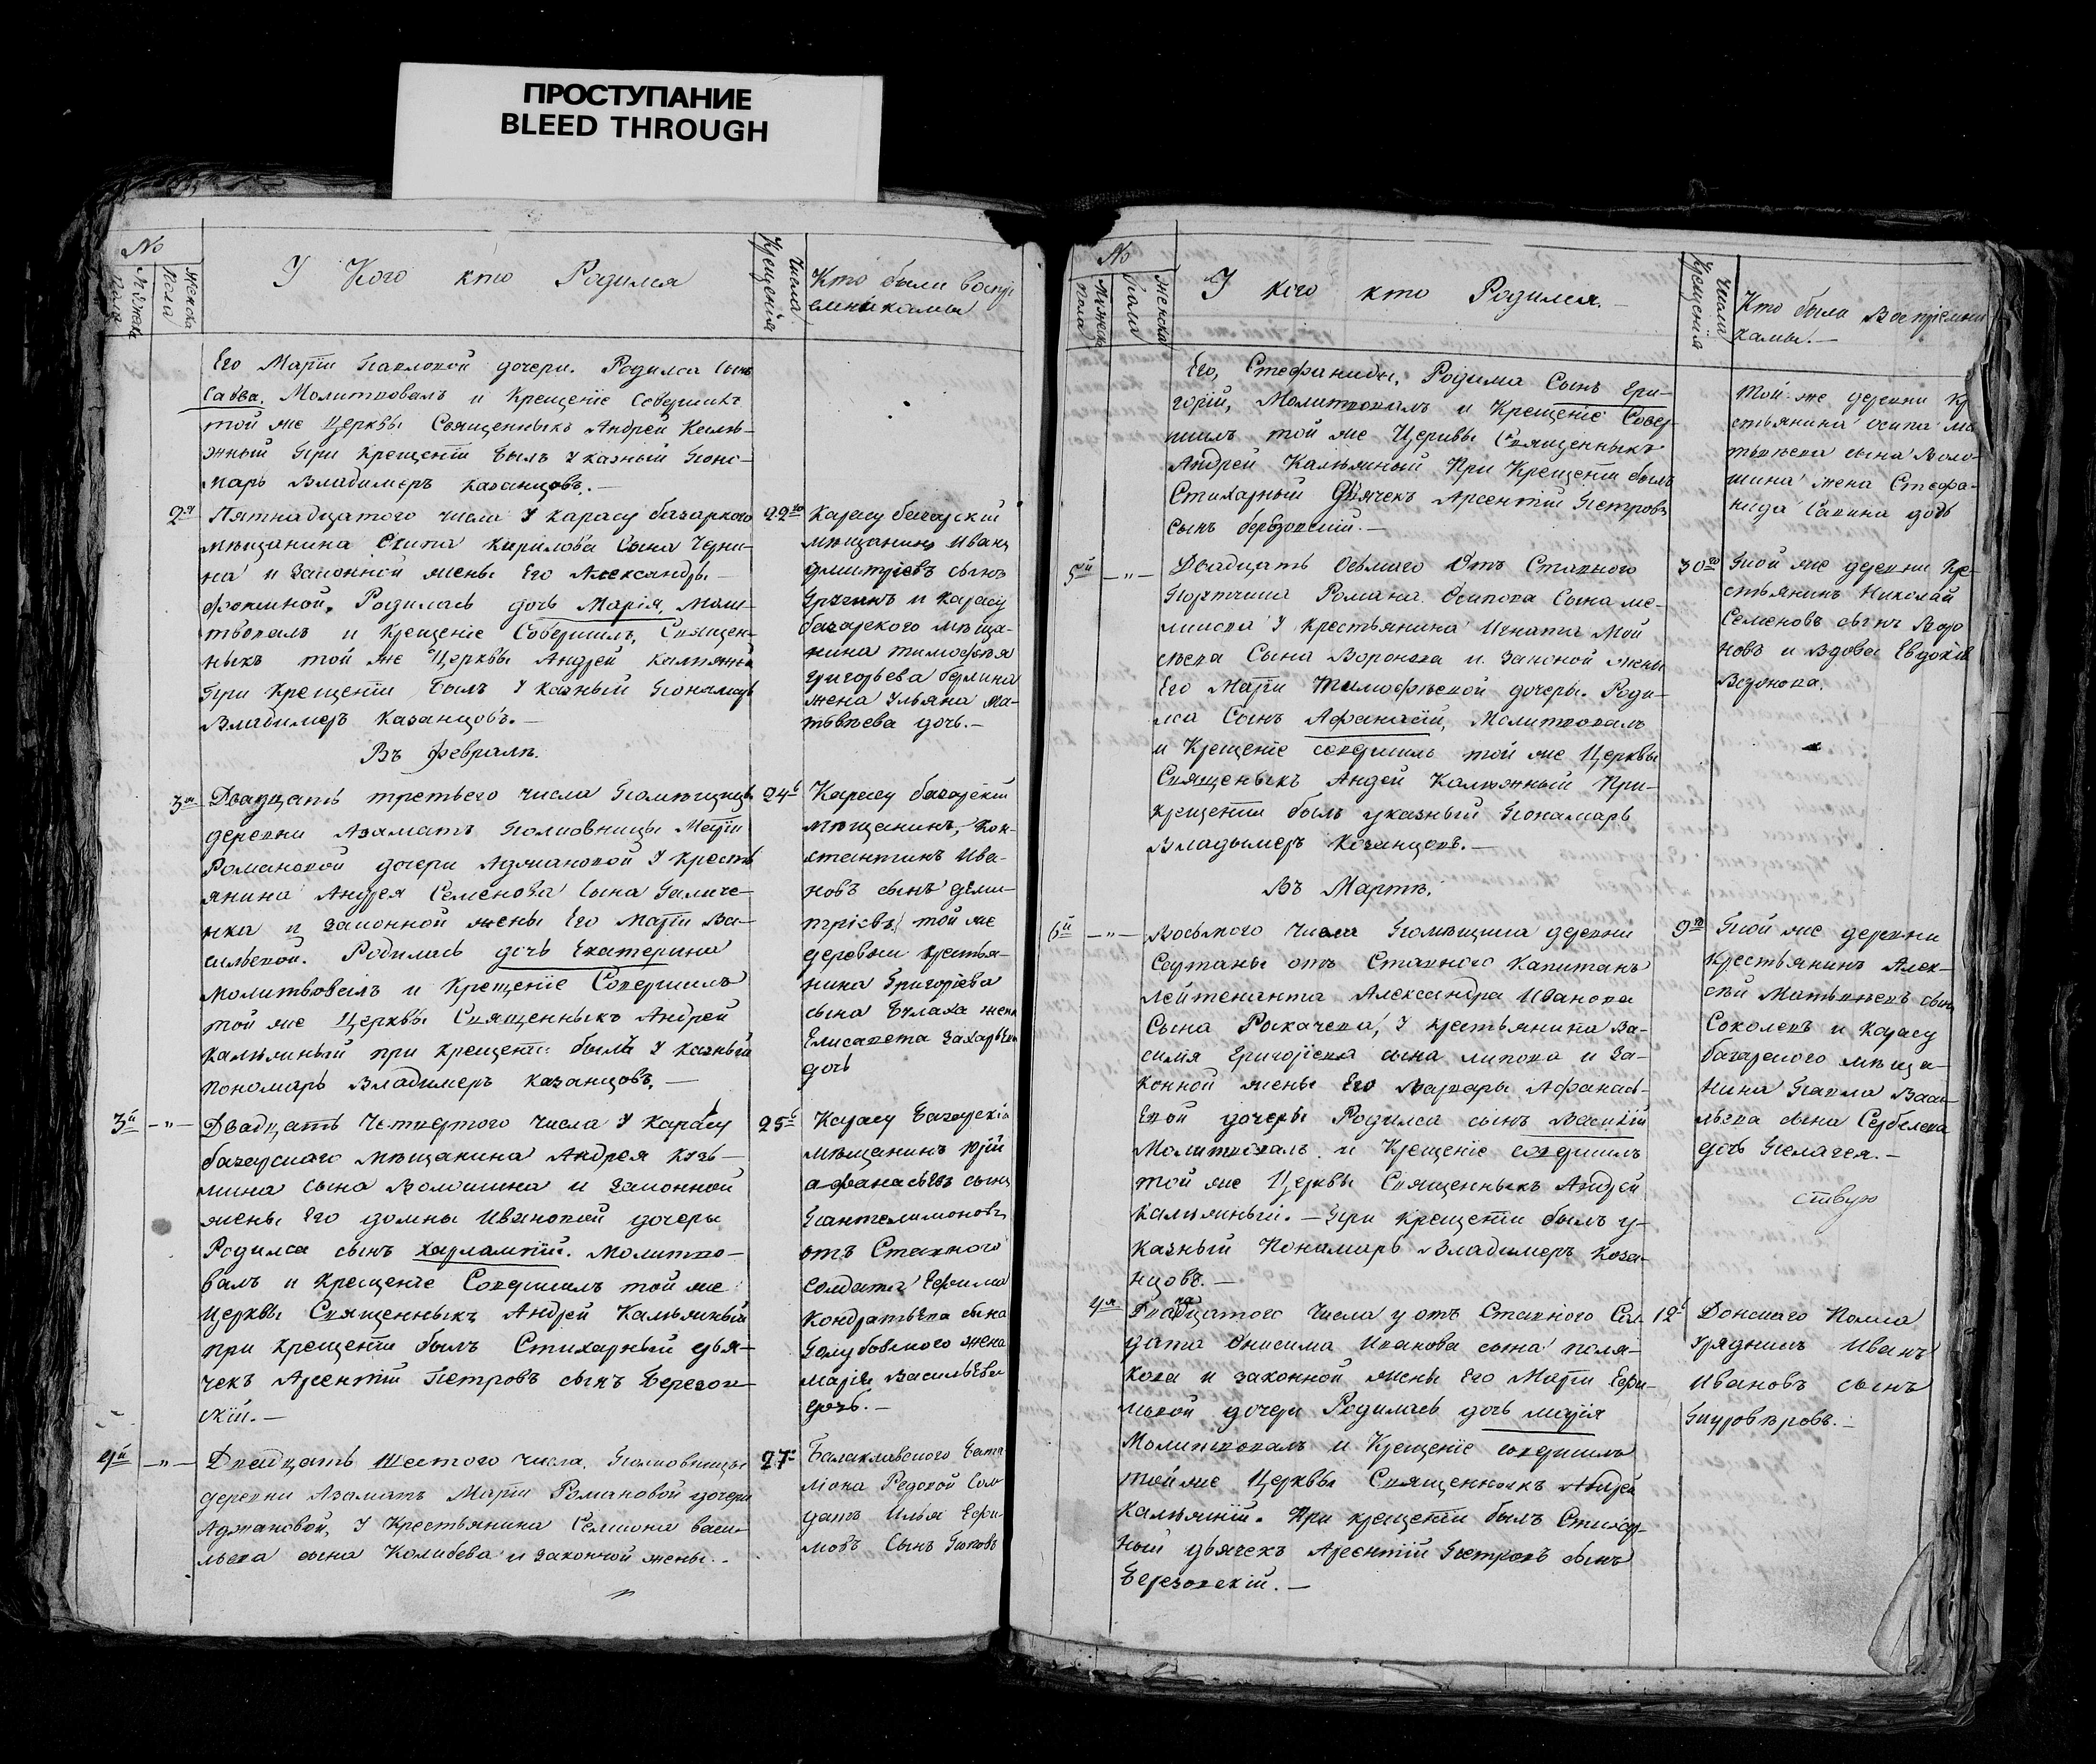 ПРОСТУПАНИЕ
BLEED THROUGH
№
Мужска пола
Женска пола
У Кого кто Родился
Числа Крещенія
Кто были воспрі
емниками
Его Маріи Павловой дочери. Родился Сынъ
Савва. Молитвовалъ и Крещеніе Совершилъ
той же Церквы Священныкъ Андрей
При Крещеніи былъ Указный Поно-
марь Владимеръ Казанцовъ.—
2я
Пятнадцатого числа У Карасу базарского
мѣщанина Кирилова Сына Черни-
на и Законной жены Его Александры
Родилась дочь Марія, Моли-
твовалъ и Крещеніе Совершилъ, Священ-
ныкъ той же Церквы Андрей
При Крещеніи былъ Указный Понамарь
Владимеръ Казанцовъ.—
22го
Карасу базарскій
мѣщанинъ Иванъ
Дмитріевъ сынъ
и Карасу
базарского мѣща-
нина Тимофея
Григорьева
жена Ульяна Ма-
твѣева дочь.—
Въ Февралѣ.
3я
Двадцать третьего числа Помѣщицы
деревни Азаматъ Полковницы Маріи
Романовой дочери У Кресть
янина Андрея Семенова Сына Галиче-
нка и Законной жены Его Маріи Ва-
сильевой. Родилась дочь Екатерина
Молитвовалъ и Крещеніе Совершилъ
той же Церквы Священныкъ Андрей
при Крещеніи былъ Указный
Пономарь Владимеръ Казанцовъ.—
24
Карасу базарскій
мѣщанинъ, Кон-
стантинъ Ива-
новъ сынъ Дими-
тріевъ, той же
деревни крестья-
нина Григоріева
сына жена
Елисавета
дочь
3й —„—
Двадцать Четвертого числа У Карасу
базарскаго мѣщанина Андрея Кузь-
мина сына Волошина и Законной
жены Его Домны Ивановой дочеры
Родился сынъ Харлампій. Молитво-
валъ и Крещеніе Совершилъ той же
Церквы Священныкъ Андрей
при крещеніи былъ Стихарный дья-
чекъ Арсентій Петровъ сынъ Березов-
скій.—
25
Карасу базарскій
мѣщанинъ Юрій
Афанасьевъ сынъ
Пантелимоновъ,
отъ Ставного
солдата Ефима
Кондратьева сына
Голубовского жена
Марія Васильева
дочь.—
4й —„—
Двадцать Шестого числа, Полковницы
деревни Азаматъ Маріи Романовой дочери
У Крестьянина Семиона Васи-
льева сына и Законной жены.
27
Балаклавского бата
ліона Редовой Сол
датъ Илья Ефи-
мовъ Сынъ
№
Мужска пола
Женска пола
У кого кто Родился.—
Числа Крещенія
Кто были Воспріемни
камы.—
Его, Стефаниды, Родился Сынъ Гри-
горій, Молитвовалъ и Крещеніе Совер-
шилъ той же Церквы Священныкъ
Андрей При Крещеніи былъ
Стихарный Дьячекъ Арсентій Петровъ
сынъ березовскій.—
Той же деревни Кр
стьянина Осипа Ма
твѣева сына Воло-
шина жена Стефа-
нида Савина дочь
5й —„—
Двадцать Осьмаго Отъ Ставного
Портчика Романа Осипова Сына ме-
У Крестьянина Игната
Сына Воронова и Законой жены
Его Маріи Тимофѣевой дочеры. Роди-
лса Сынъ Афанасій, Молитвовалъ
и Крещеніе совершилъ той же Церквы
Священыкъ Андей При-
крещеніи былъ указный Понамарь
Владымеръ Козанцовъ.—
30го
Той же деревни Кре-
стьянинъ Николай
Семеновъ сынъ Воро
новъ и Вдова Евдокія
Въ Мартѣ.
6й —„—
Восьмого Числа Помѣщика деревни
Султаны отъ Ставного Капитанъ
Лейтенанта Александра Иванова
Сына Рыкачева, У крестьянина Ва-
силія Григоріева сына Липова и За-
конной жены Его Варвары Афанась-
евой дочеры Родился сынъ Василій
Молитвовалъ и Крещеніе совершилъ
той же Церквы Священныкъ Андрей
— При Крещеніи былъ у-
казный Пономарь Владимеръ Коза-
нцовъ.—
9го
Той же деревни
Крестьянинъ Алек-
сѣй Матьвѣевъ сынъ
Соколовъ и Карасу
базарского мѣща-
нина Павла Васи-
льева сына
дочь Пелагея.—
4я
Двадцатого Числа у отъ Ставного Сол
дата Онисима Иванова сына Поля-
кова и законной жены Его Маріи Ефи-
мовой дочери Родилась дочь Марія
Молитвовалъ и Крещеніе совершилъ
той же Церквы Священныкъ Андрей
При крещеніи былъ Стихар-
ный дьячекъ Арсентій Петровъ сынъ
Березовскій.—
12
Донскаго Полка
Урядникъ Иванъ
Ивановъ сынъ